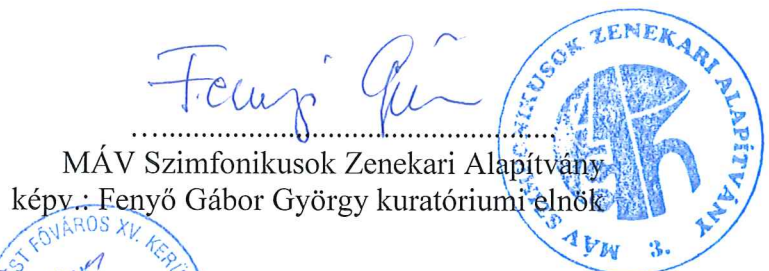 Fenyő Gábor
MÁV Szimfonikusok Zenekari Alapítvány
képv.: Fenyő Gábor György kuratóriumi elnök
MÁV SZIMFONIKUSOK ZENEKARI ALAPÍTVÁNY
3.
FŐVÁROS XV.